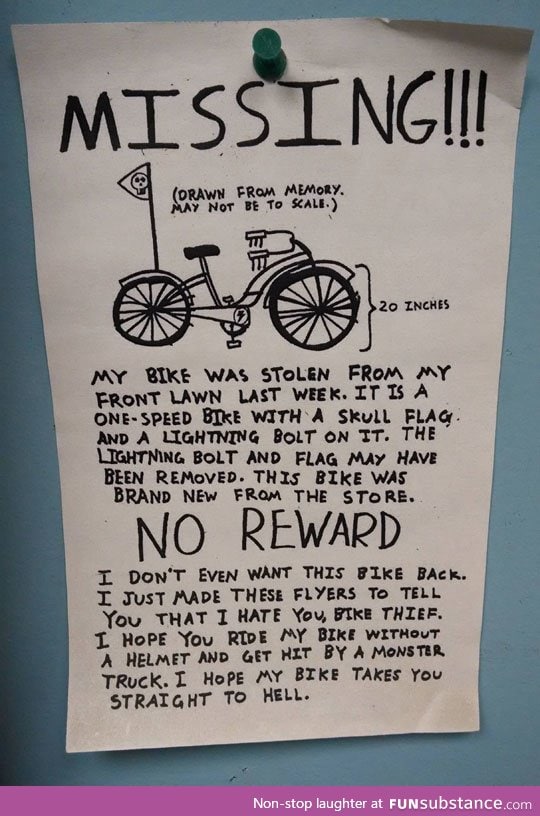 MISSING!!!
(DRAWN FROM MEMORY.
MAY NOT BE TO SCALE.)
20 INCHES
MY BIKE WAS STOLEN FROM MY
FRONT LAWN LAST WEEK. IT IS A
ONE-SPEED BIKE WITH A SKULL FLAG
AND A LIGHTNING BOLT ON IT. THE
LIGHTNING BOLT AND FLAG MAY HAVE
BEEN REMOVED. THIS BIKE WAS
BRAND NEW FROM THE STORE.
NO REWARD
I DON'T EVEN WANT THIS BIKE BACK.
I JUST MADE THESE FLYERS TO TELL
YOU THAT I HATE YOU, BIKE THIEF.
I HOPE YOU RIDE MY BIKE WITHOUT
A HELMET AND GET HIT BY A MONSTER
TRUCK. I HOPE MY BIKE TAKES YOU
STRAIGHT TO HELL.
Non-stop laughter at FUNsubstance.com